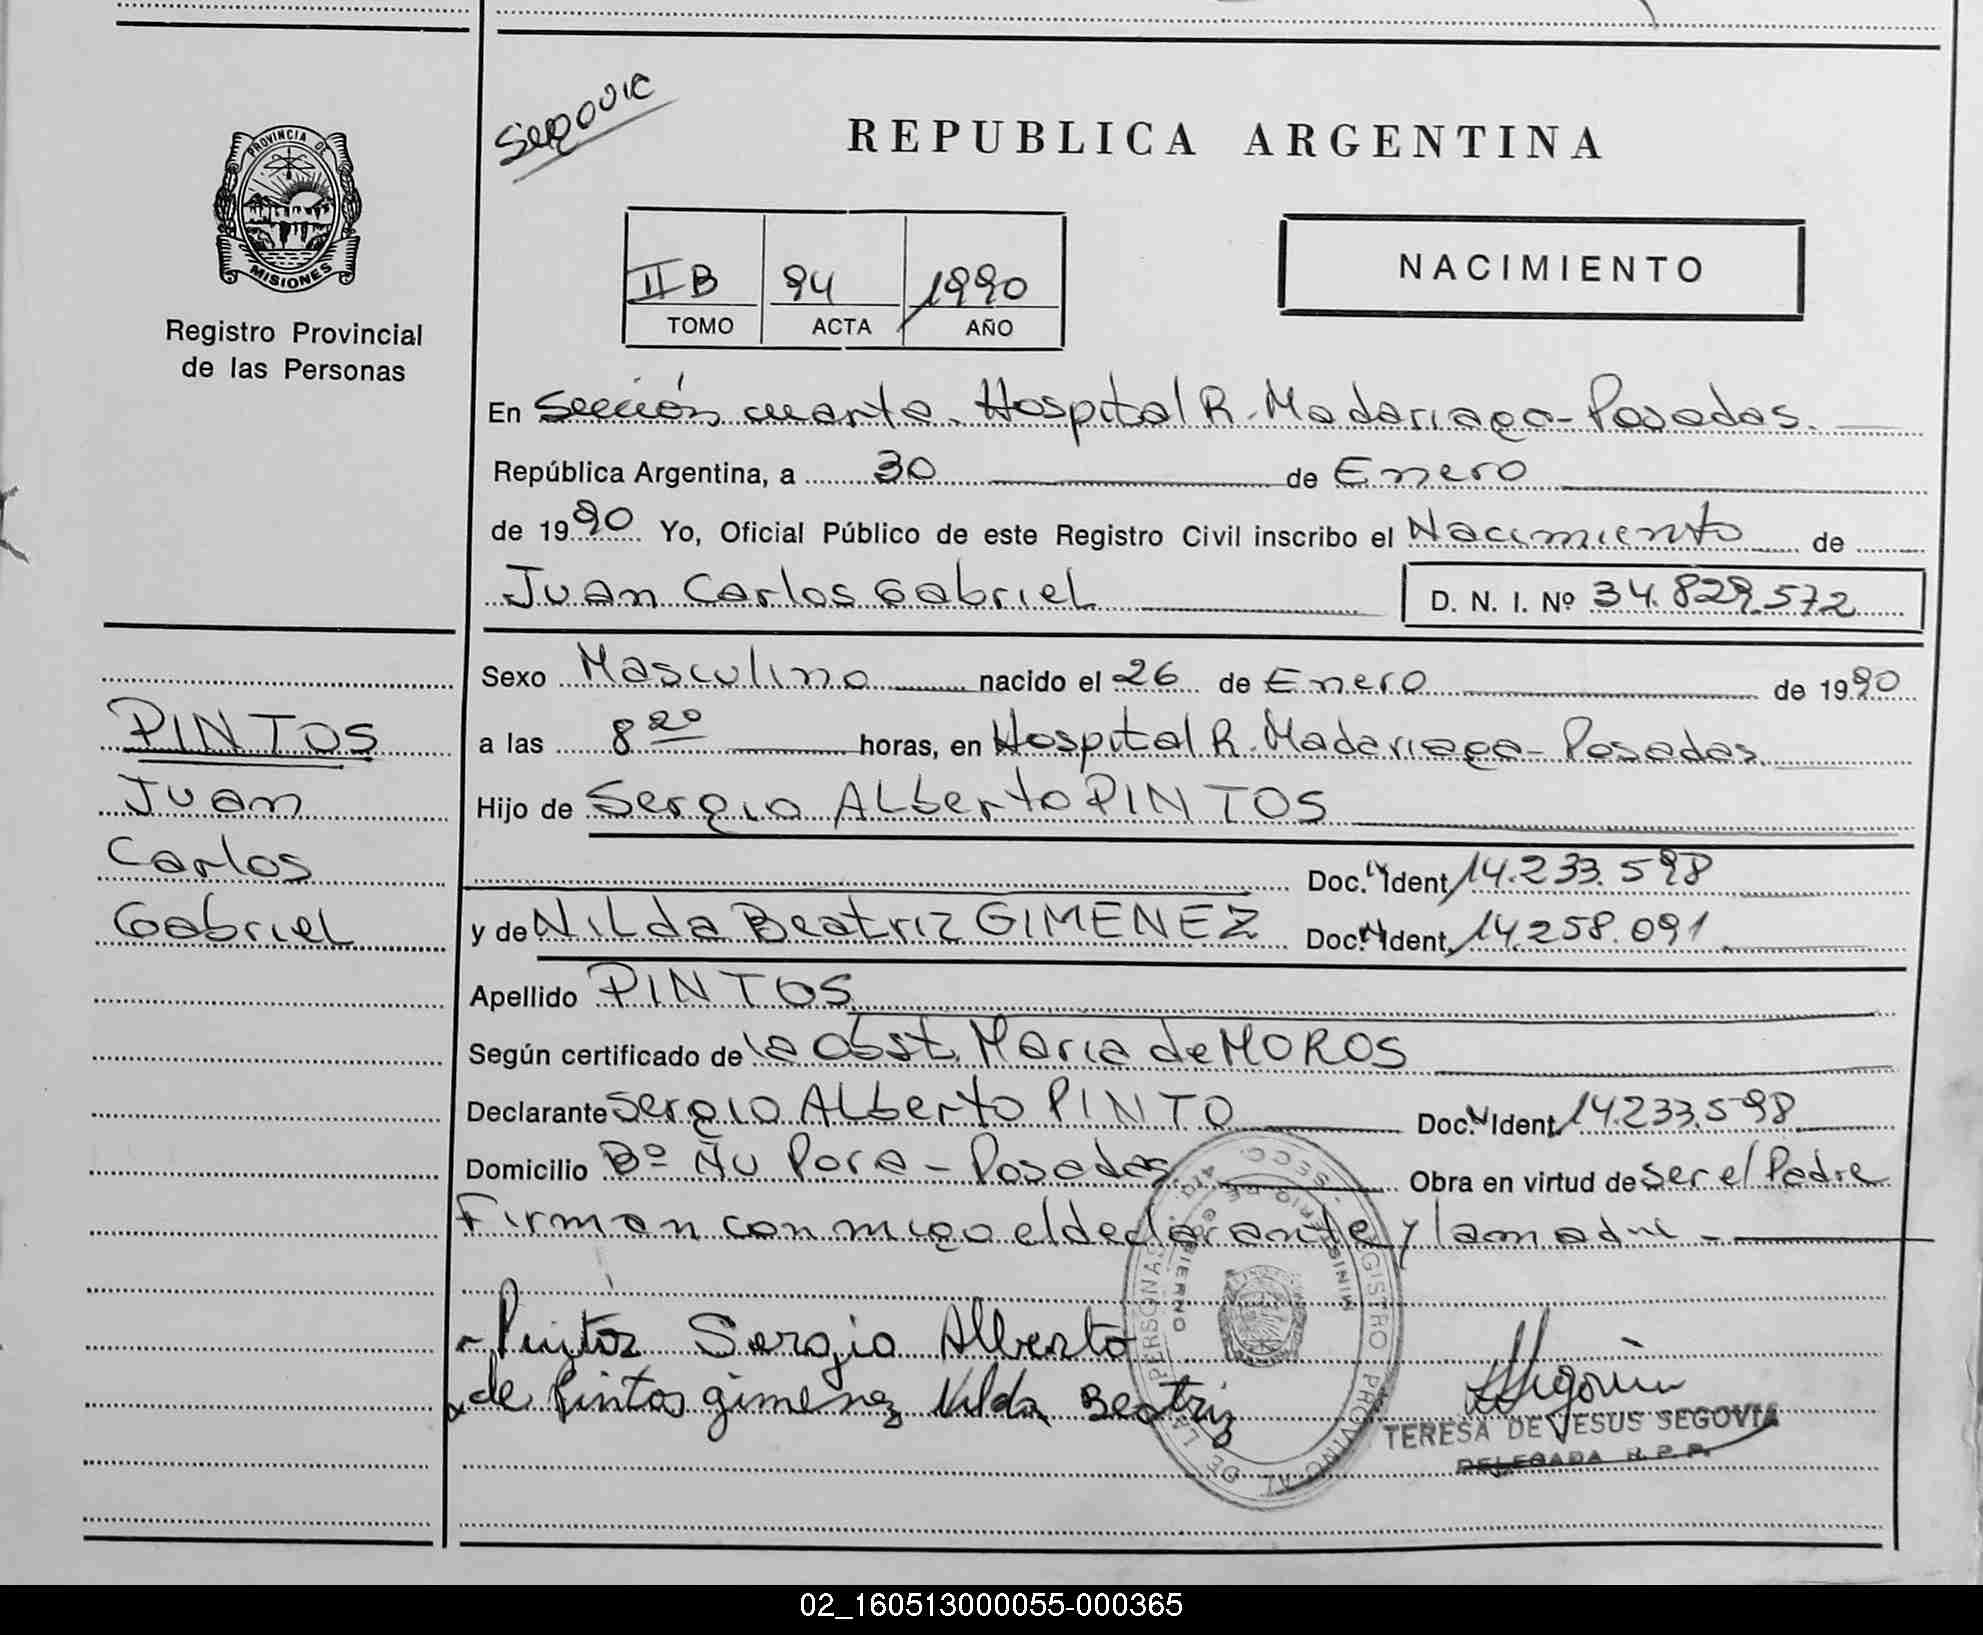 Segovia
REPUBLICA ARGENTINA
PROVINCIA DE
MISIONES
Registro Provincial
de las Personas
II B 94 1990
TOMO ACTA AÑO
NACIMIENTO
En Sección cuarta. Hospital R. Madariaga - Posadas.
República Argentina, a 30 de Enero
de 1990 Yo, Oficial Público de este Registro Civil inscribo el Nacimiento de
Juan Carlos Gabriel D. N. I. Nº 34.829.572
Sexo Masculino nacido el 26 de Enero de 1990
a las 8 20 horas, en Hospital R. Madariaga - Posadas.
Hijo de Sergio Alberto PINTOS
Doc. Ident. 14.233.598
y de Nilda Beatriz GIMENEZ Doc. Ident. 14.258.091
PINTOS
Juan
Carlos
Gabriel
Apellido PINTOS
Según certificado de la Obst. Maria de MOROS
Declarante Sergio Alberto PINTO Doc. Ident. 14.233.598
Domicilio Bº Ñu Pora - Posadas Obra en virtud de ser el Padre
Firman conmigo el declarante y la madre -
Pintos Sergio Alberto
de Pintos gimenez Nilda Beatriz
REGISTRO PROVINCIAL DE LAS PERSONAS
MINISTERIO DE GOBIERNO
SECC. 4ta.
TERESA DE JESUS SEGOVIA
DELEGADA R.P.P.
02_160513000055-000365